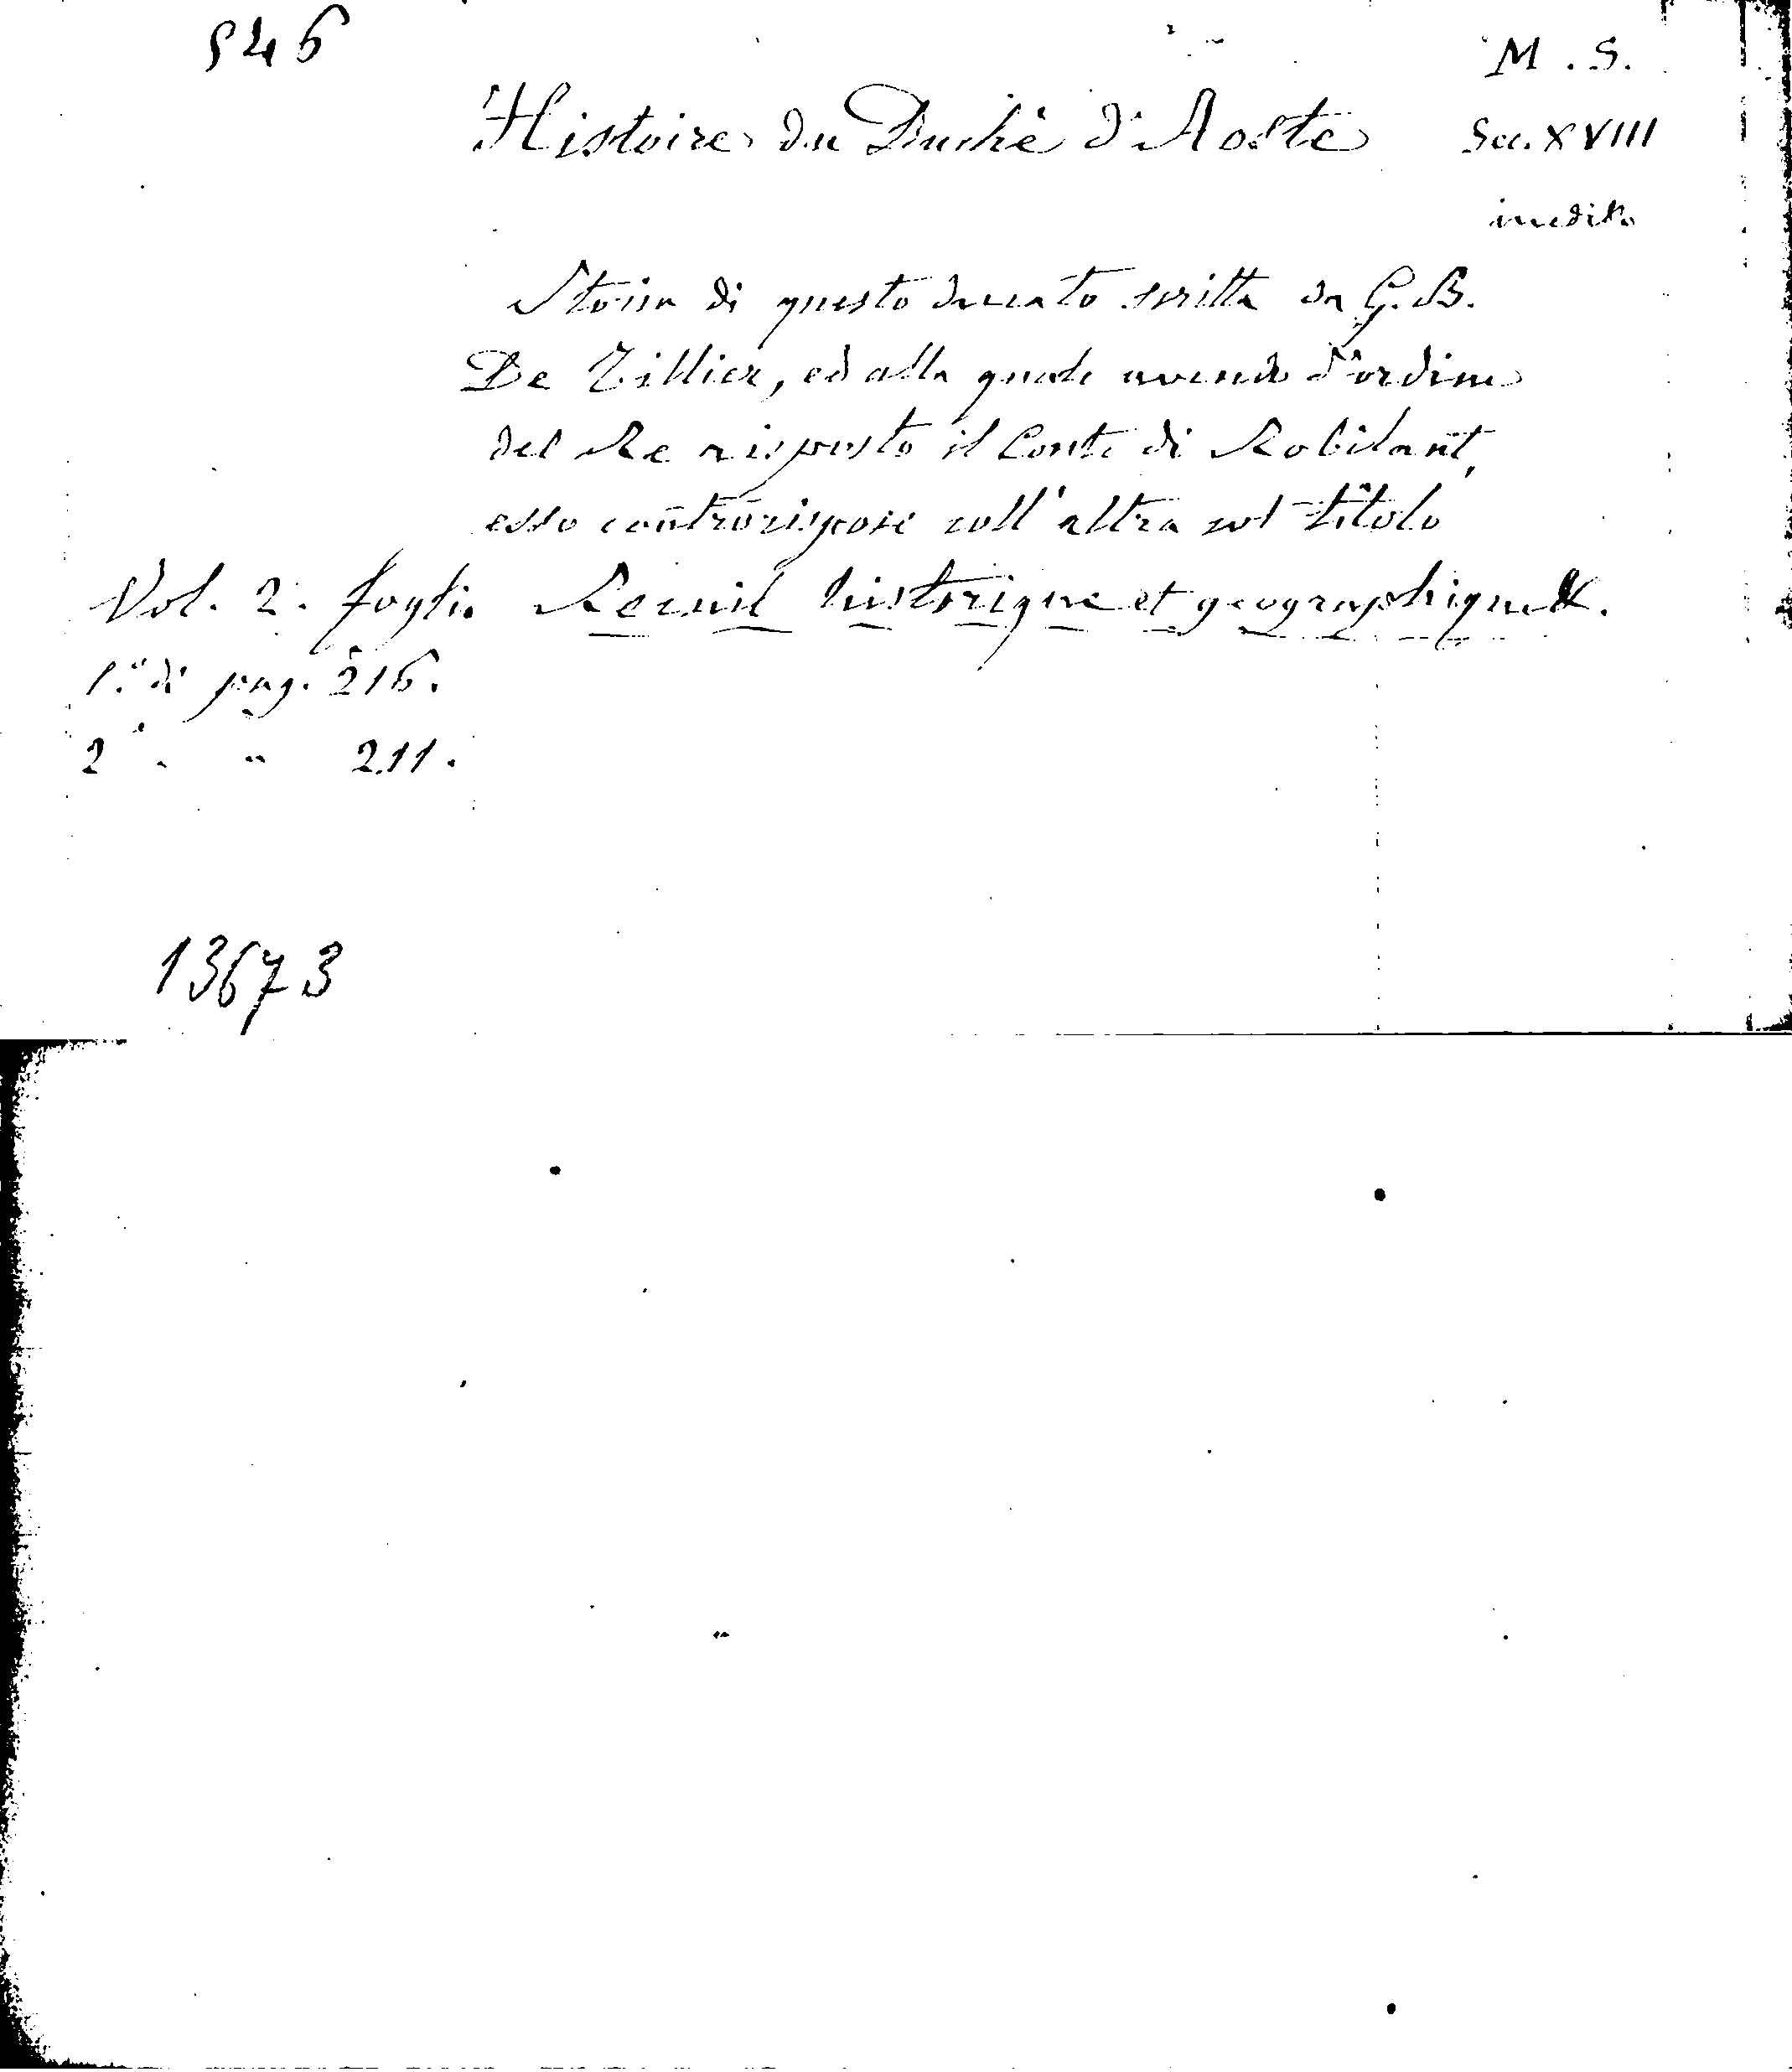 546
M. S.
Histoire du Duché d'Aoste
Sec. XVIII
inedito
Storia di questo ducato scritta da G. B.
De Tillier, ed alla quale avendo d'ordine
del Re risposto il Conte di Robilant,
esso controrispose coll'altra sul titolo
Vol. 2. foglio Recueil historique et geographique &.
1.º di pag. 216.
2º " " 211.
13673